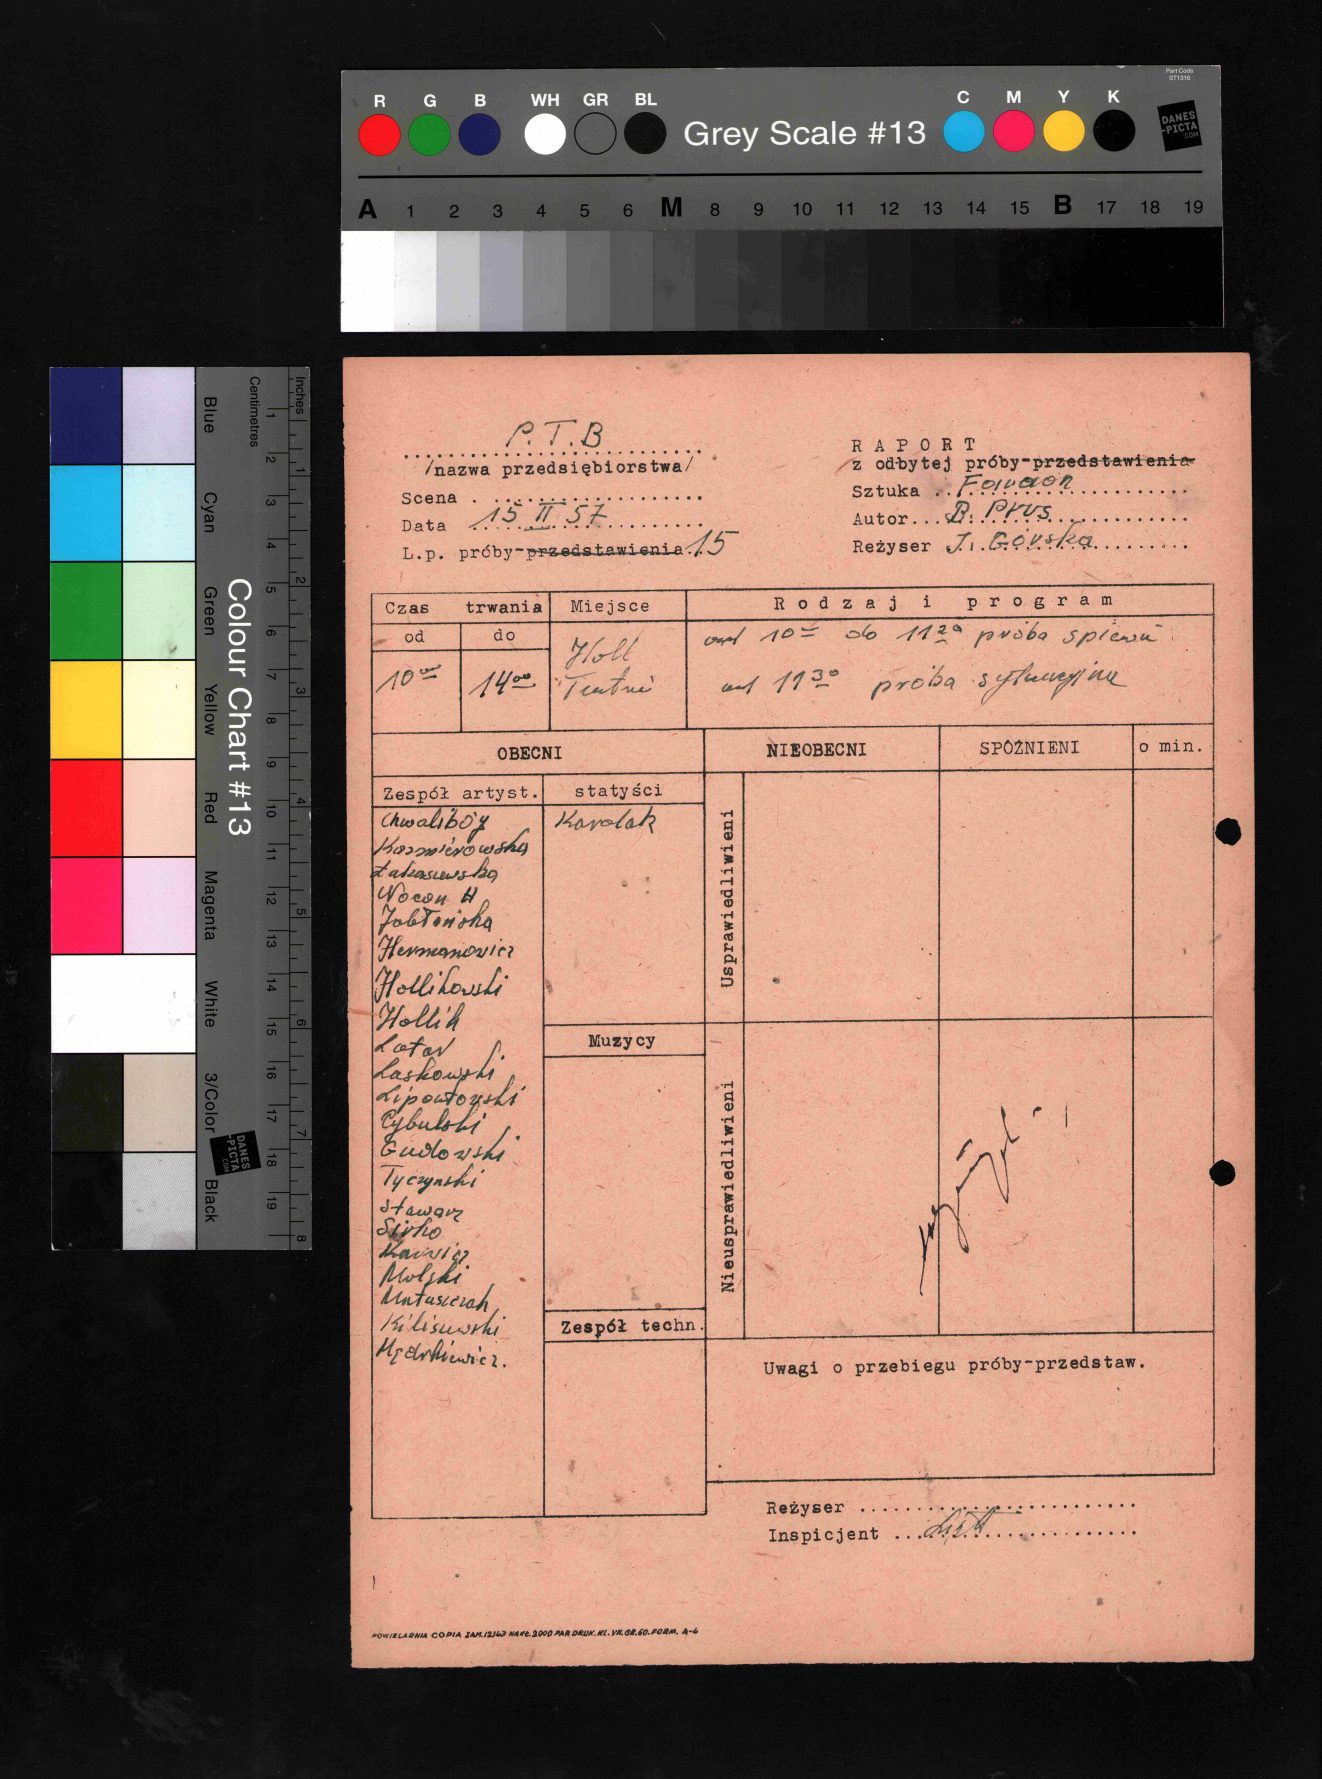 Part Code
ST1316
R G B WH GR BL Grey Scale #13 C M Y K
DANES
-PICTA
.COM
A 1 2 3 4 5 6 M 8 9 10 11 12 13 14 15 B 17 18 19
Colour Chart #13
Blue Cyan Green Yellow Red Magenta White 3/Color Black
Centimetres 1 2 3 4 5 6 7 8 9 10 11 12 13 14 15 16 17 18 19
Inches 1 2 3 4 5 6 7 8
DANES
-PICTA
.COM
P.T.B
/nazwa przedsiębiorstwa/
Scena
Data 15 II 57
L.p. próby-przedstawienia 15
RAPORT
z odbytej próby-przedstawienia
Sztuka Faraon
Autor B. Prus
Reżyser J. Górska
Czas trwania Miejsce Rodzaj i program
od do
10 00 14 00 Holl Teatru
od 10 00 do 11 20 próba śpiewu
od 11 30 próba sytuacyjna
OBECNI NIEOBECNI SPÓŹNIENI o min.
Zespół artyst. statyści
Chwalibóg Karolak
Kazmierowska
Łukaszewska
Nocoń H
Jabłońska
Hermanowicz
Hollikowski
Hollik
Lotar
Laskowski
Lipowłowski
Cybulski
Gudowski
Tyczyński
Stawarz
Sirko
Karwicz
Molski
Matuszczak
Kiliszewski
Mędrkiewicz.
Usprawiedliwieni
Muzycy
Nieusprawiedliwieni
Zespół techn.
Uwagi o przebiegu próby-przedstaw.
Reżyser
Inspicjent
POWIELARNIA COPIA ZAM.12143 NAKŁ.2000 PAP. DRUK. KL. VII. GR.60. FORM. A-4